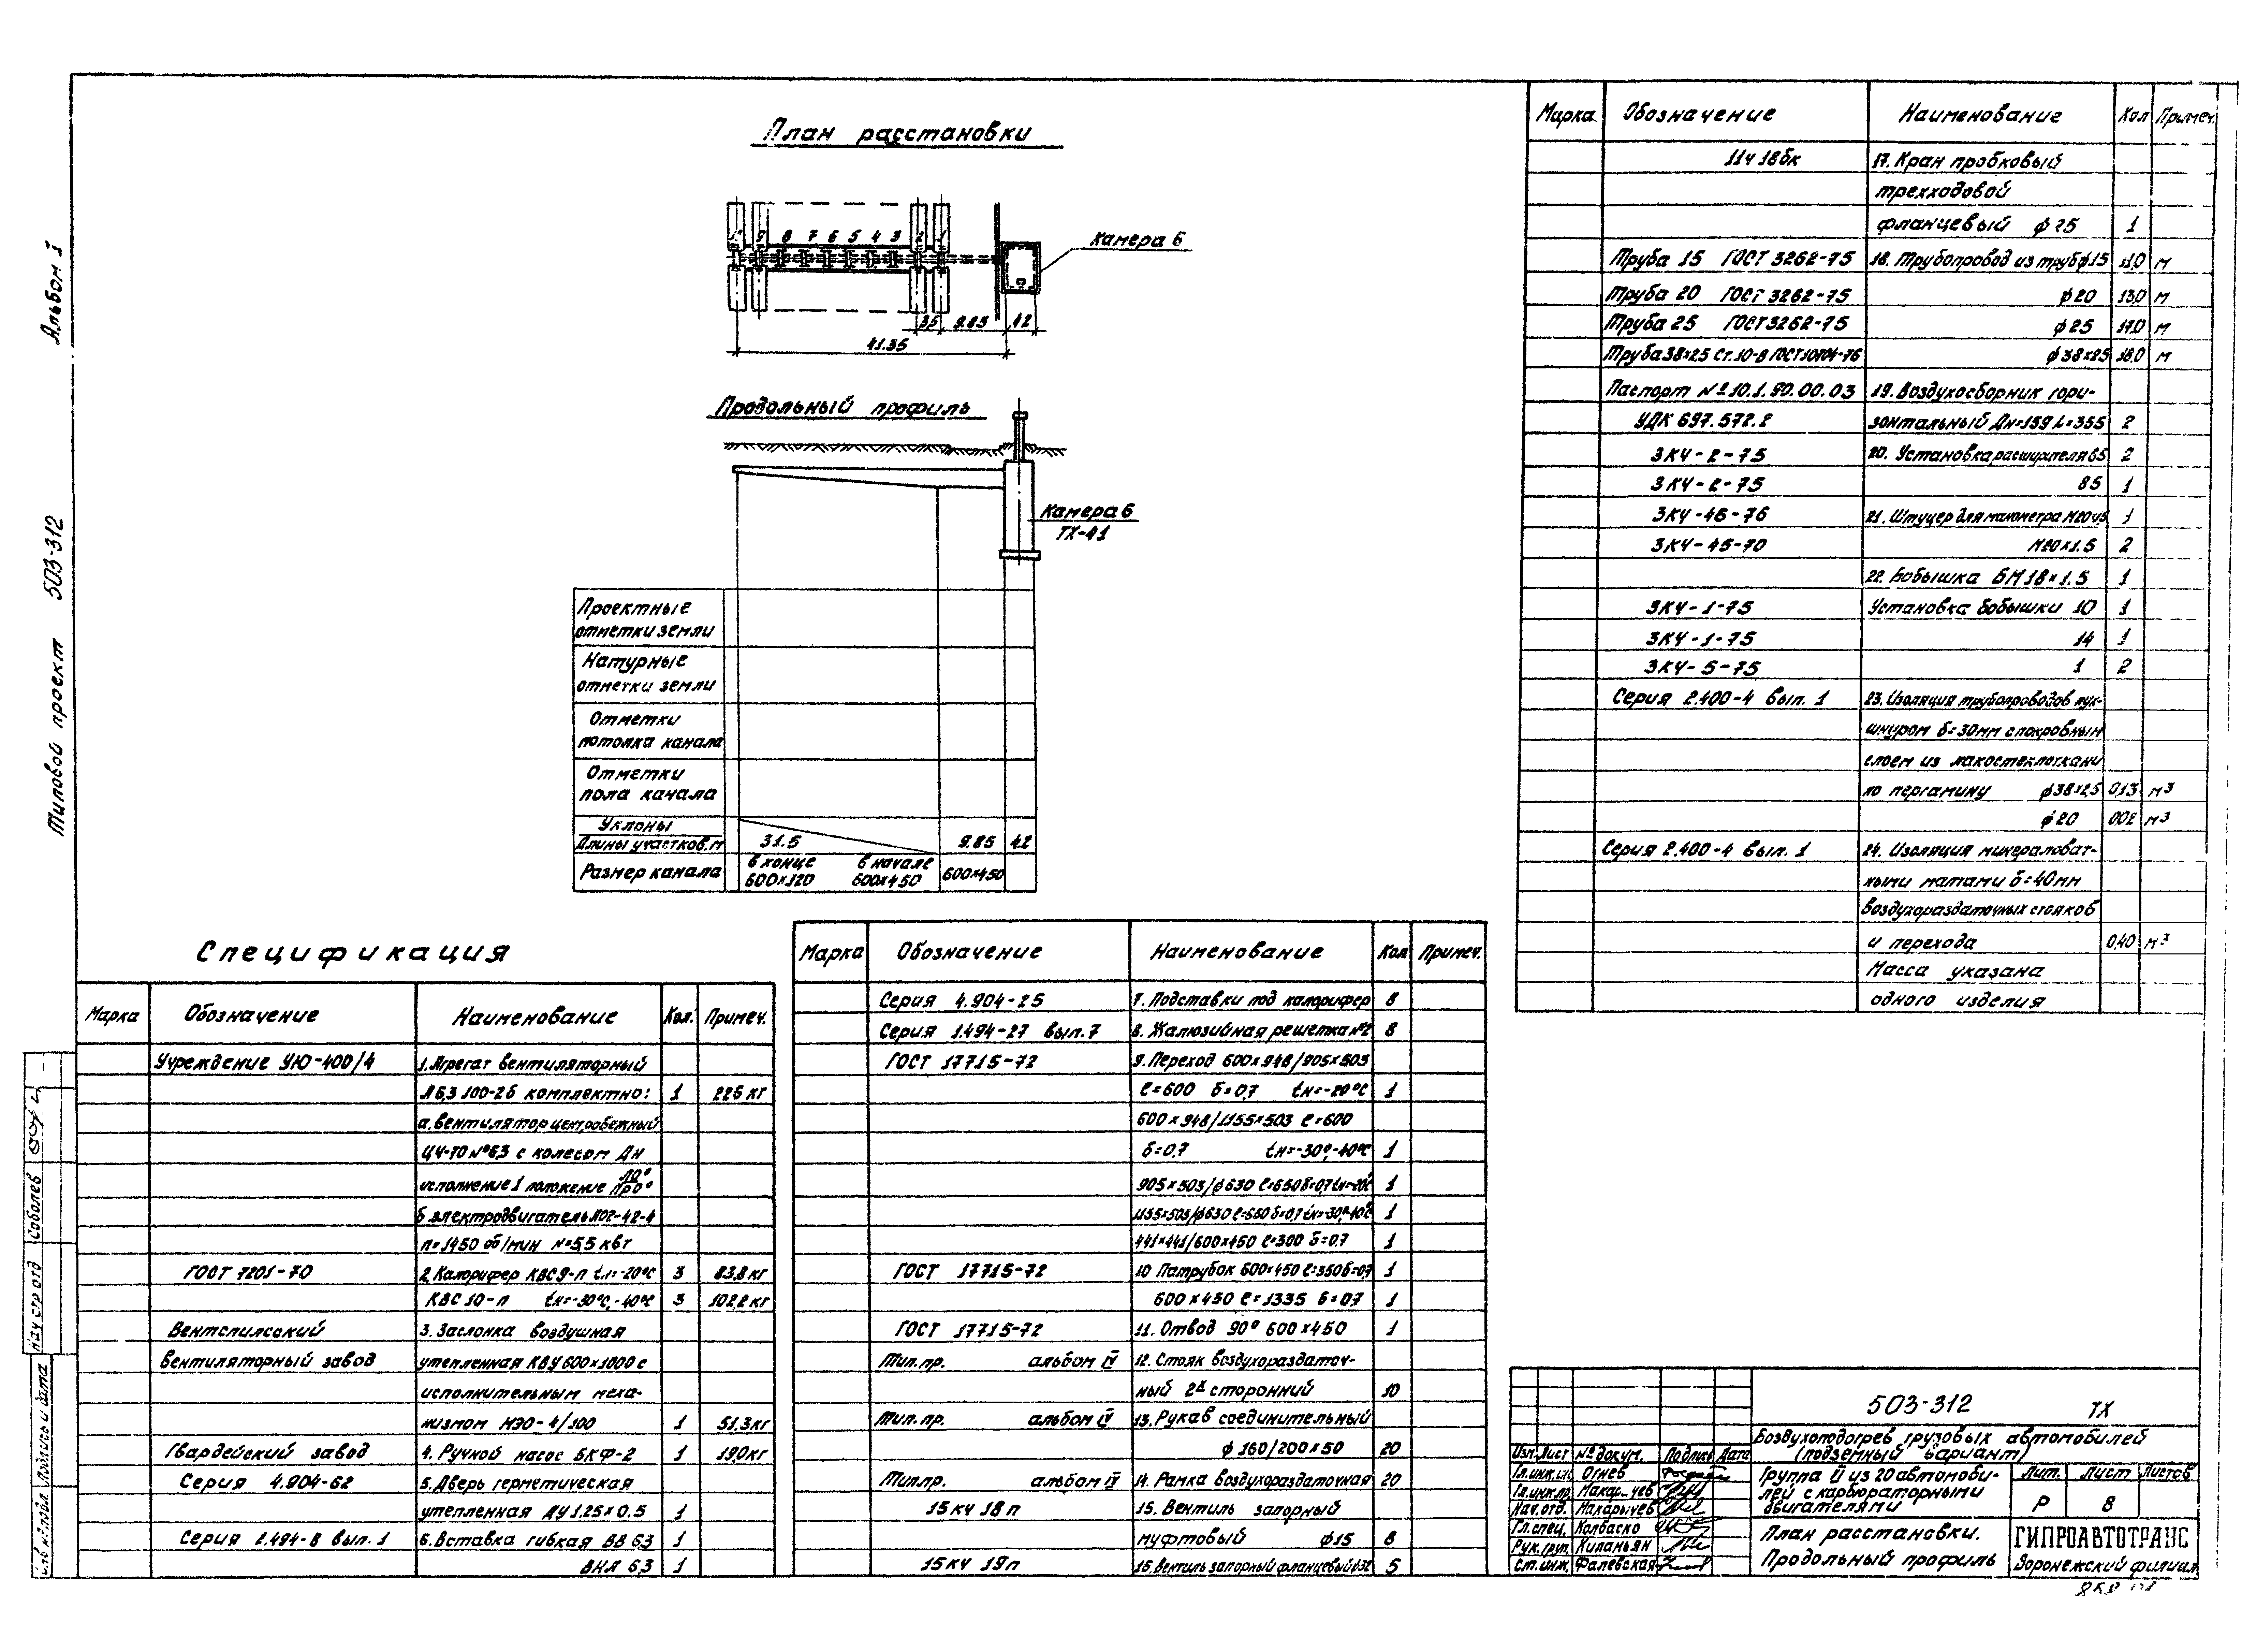 Альбом I
Типовой проект 503-312
План расстановки
9 8 7 6 5 4 3 2 1
Камера 6
35 9.85 42
41.35
Продольный профиль
Камера 6
ТХ-41
Проектные
отметки земли
Натурные
отметки земли
Отметки
потолка канала
Отметки
пола канала
Уклоны
Длины участков.м 31.5 9.85 42
Размер канала
в конце в начале
600×120 600×450 600×450
Спецификация
Марка Обозначение Наименование Кол. Примеч.
Учреждение УЮ-400/4 1. Агрегат вентиляторный
А6,3 100-2б комплектно: 1 226 кг
а. вентилятор центробежный
Ц4-70 №6,3 с колесом Дн
исполнение 1 положение Л0° Пр0°
б. электродвигатель А02-42-4
n=1450 об/мин N=5,5 квт
ГОСТ 7201-70 2. Калорифер КВС 9-п tн=-20°С 3 83,8 кг
КВС 10-п tн=-30°С,-40°С 3 102,2 кг
Вентспилсский 3. Заслонка воздушная
вентиляторный завод утепленная КВУ 600×1000 с
исполнительным меха-
низмом МЭО-4/100 1 51.3 кг
Гвардейский завод 4. Ручной насос БКФ-2 1 19,0 кг
Серия 4.904-62 5. Дверь герметическая
утепленная ДУ 1.25×0.5 1
Серия 2.494-8 вып. 1 6. Вставка гибкая ВВ 6,3 1
ВНА 6,3 1
Марка Обозначение Наименование Кол Примеч.
Серия 4.904-25 7. Подставки под калорифер 8
Серия 1.494-27 вып. 7 8. Жалюзийная решетка №2 8
ГОСТ 17715-72 9. Переход 600×948/905×503
ℓ=600 δ=0,7 tн=-20°С 1
600×948/1155×503 ℓ=600
δ=0,7 tн=-30°,-40°С 1
905×503/ф630 ℓ=650 δ=0,7 tн=-20° 1
1155×503/ф630 ℓ=650 δ=0,7 tн=-30°,-40°С 1
441×441/600×450 ℓ=300 δ=0.7 1
ГОСТ 17715-72 10 Патрубок 600×450 ℓ=350 δ=0,7 1
600×450 ℓ=1335 δ=0,7 1
ГОСТ 17715-72 11. Отвод 90° 600×450 1
Тип. пр. альбом IV 12. Стояк воздухораздаточ-
ный 2х сторонний 10
Тип. пр. альбом IV 13. Рукав соединительный
ф 160/200×50 20
Тип.пр. альбом IV 14. Рамка воздухораздаточная 20
15 кч 18 п 15. Вентиль запорный
муфтовый ф15 8
15 кч 19 п 16. Вентиль запорный фланцевый ф32 5
Марка Обозначение Наименование Кол Примеч.
11ч 18бк 17. Кран пробковый
трехходовой
фланцевый ф 25 1
Труба 15 ГОСТ 3262-75 18. Трубопровод из труб ф15 11,0 м
Труба 20 ГОСТ 3262-75 ф20 13,0 м
Труба 25 ГОСТ 3262-75 ф25 17,0 м
Труба 38×2,5 Ст.10-В ГОСТ 10704-76 ф38×2,5 18,0 м
Паспорт №10.1.90.00.03 19. Воздухосборник гори-
УДК 697.572.2 зонтальный Дн=159 L=355 2
ЗК4-2-75 20. Установка расширителя 65 2
ЗК4-2-75 85 1
ЗК4-46-76 21. Штуцер для манометра М20×1,5 1
ЗК4-45-70 М20×1.5 2
22. Бобышка БМ18×1.5 1
ЗК4-1-75 Установка бобышки 10 1
ЗК4-1-75 14 1
ЗК4-5-75 1 2
Серия 2.400-4 вып. 1 23. Изоляция трубопроводов пух-
шнуром δ=30мм с покровным
слоем из лакостеклоткани
по пергамину ф38×2,5 0,13 м3
ф20 0,02 м3
Серия 2.400-4 вып. 1 24. Изоляция минераловат-
ными матами δ=40мм
воздухораздаточных стояков
и перехода 0,40 м3
Масса указана
одного изделия
503-312 ТХ
Воздухоподогрев грузовых автомобилей
(подземный вариант)
Изм. Лист № докум. Подпись Дата
Гл.инж.ин Огнев
Гл.инж.пр.
Нач.отд. Макарычев
Гл.спец. Колбаско
Рук.груп. Киланьян
Ст.инж. Фалевская
Группа II из 20 автомоби-
лей с карбюраторными
двигателями
Лит. Лист Листов
Р 8
План расстановки.
Продольный профиль
ГИПРОАВТОТРАНС
Воронежский филиал
Нач стр отд Соболев
Инв №подл Подпись и дата